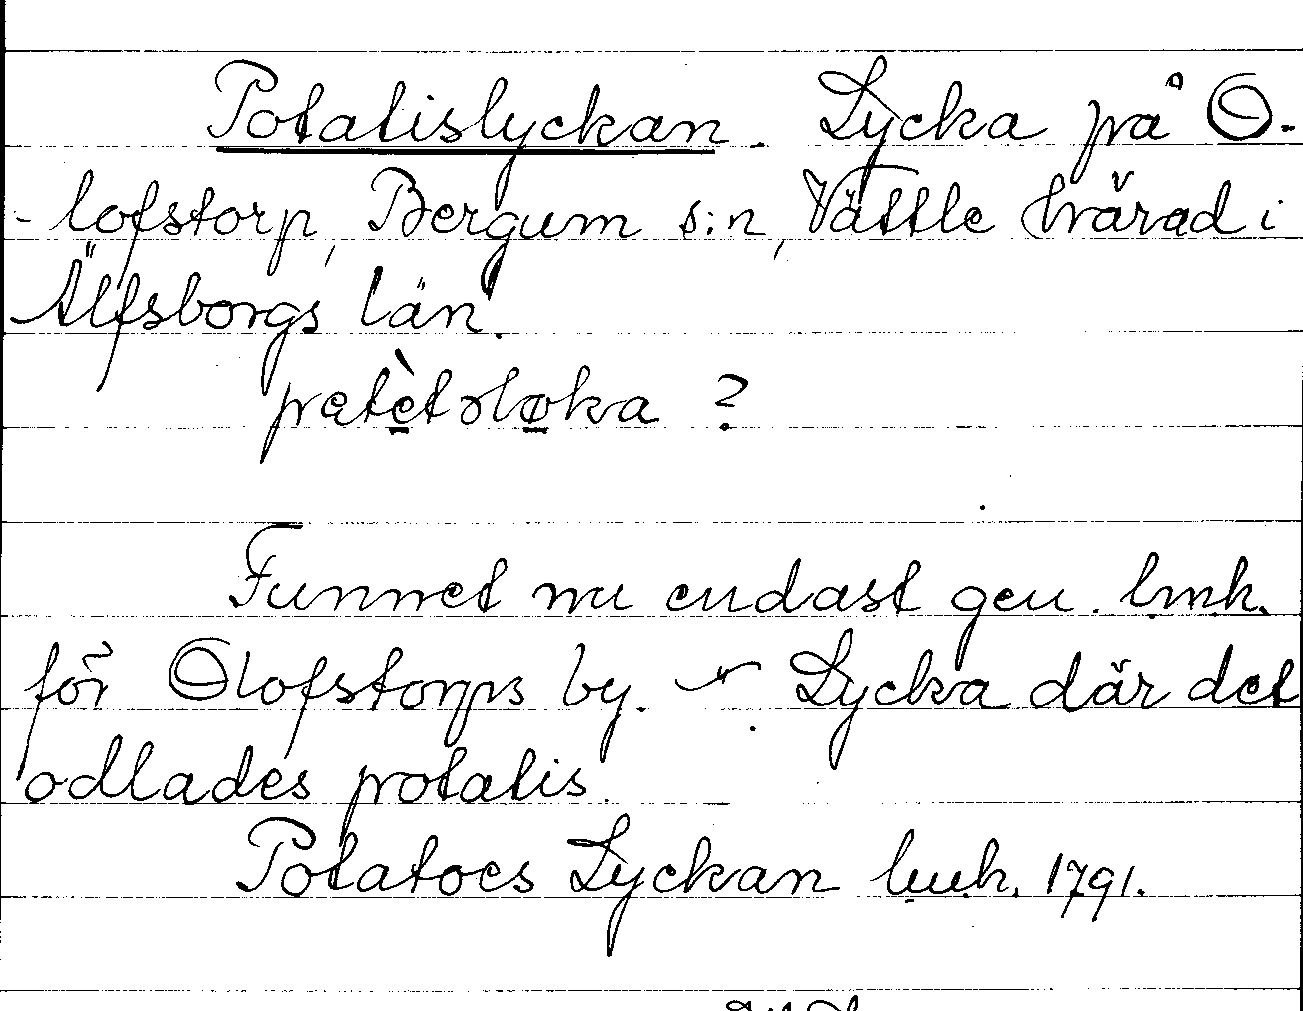 Potatislyckan. Lycka på O-
-lofstorp, Bergum s:n, Vättle härad i
Älfsborgs län.
patètoløka ?
Funnet nu endast gen. lmk.
för Olofstorps by. Lycka där det
odlades potatis.
Potatoes Lyckan lmk. 1791.